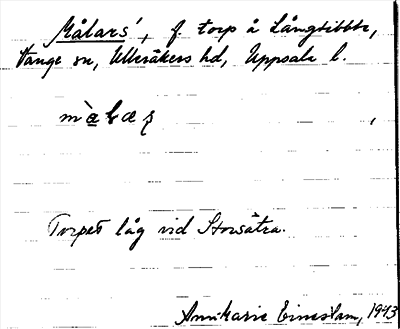 Målars', f. torp å Långtibble,
Vänge sn, Ulleråkers hd, Uppsala l.
Torpet låg vid Storsätra.
Ann-Marie Einestam, 1943